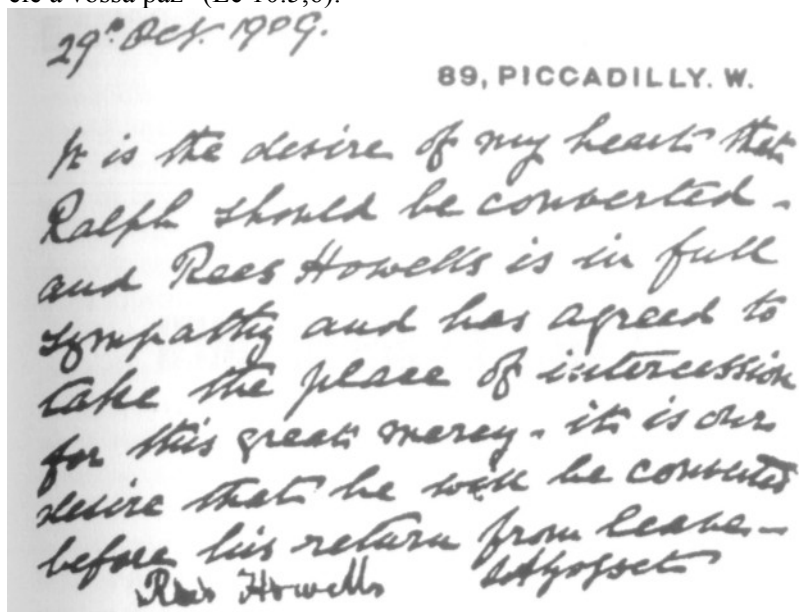 ele a vossa paz" (Lc 10.5,6).
29th Oct. 1909.
89, PICCADILLY. W.
It is the desire of my heart that
Ralph should be converted -
and Rees Howells is in full
sympathy and has agreed to
take the place of intercession
for this great mercy - it is our
desire that he will be converted
before his return from leave -
Rees Howells